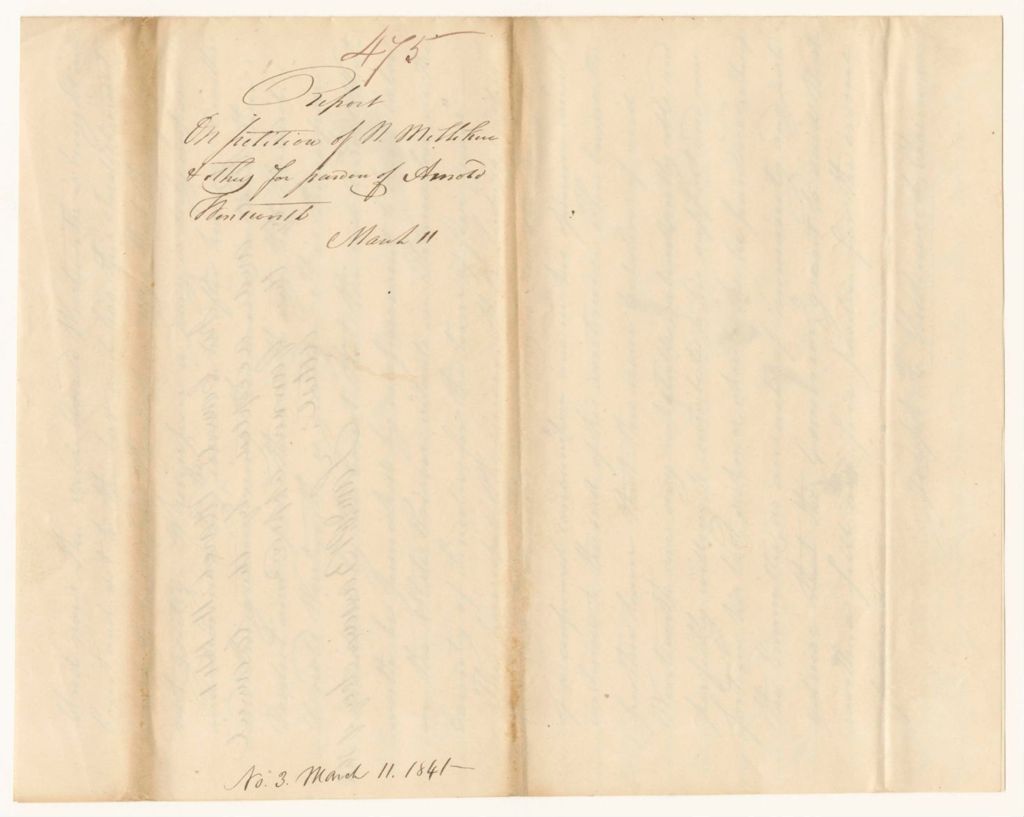 475
Report
On petition of N. Milliken
& others for pardon of Arnold
Wentworth
March 11
No. 3. March 11. 1841